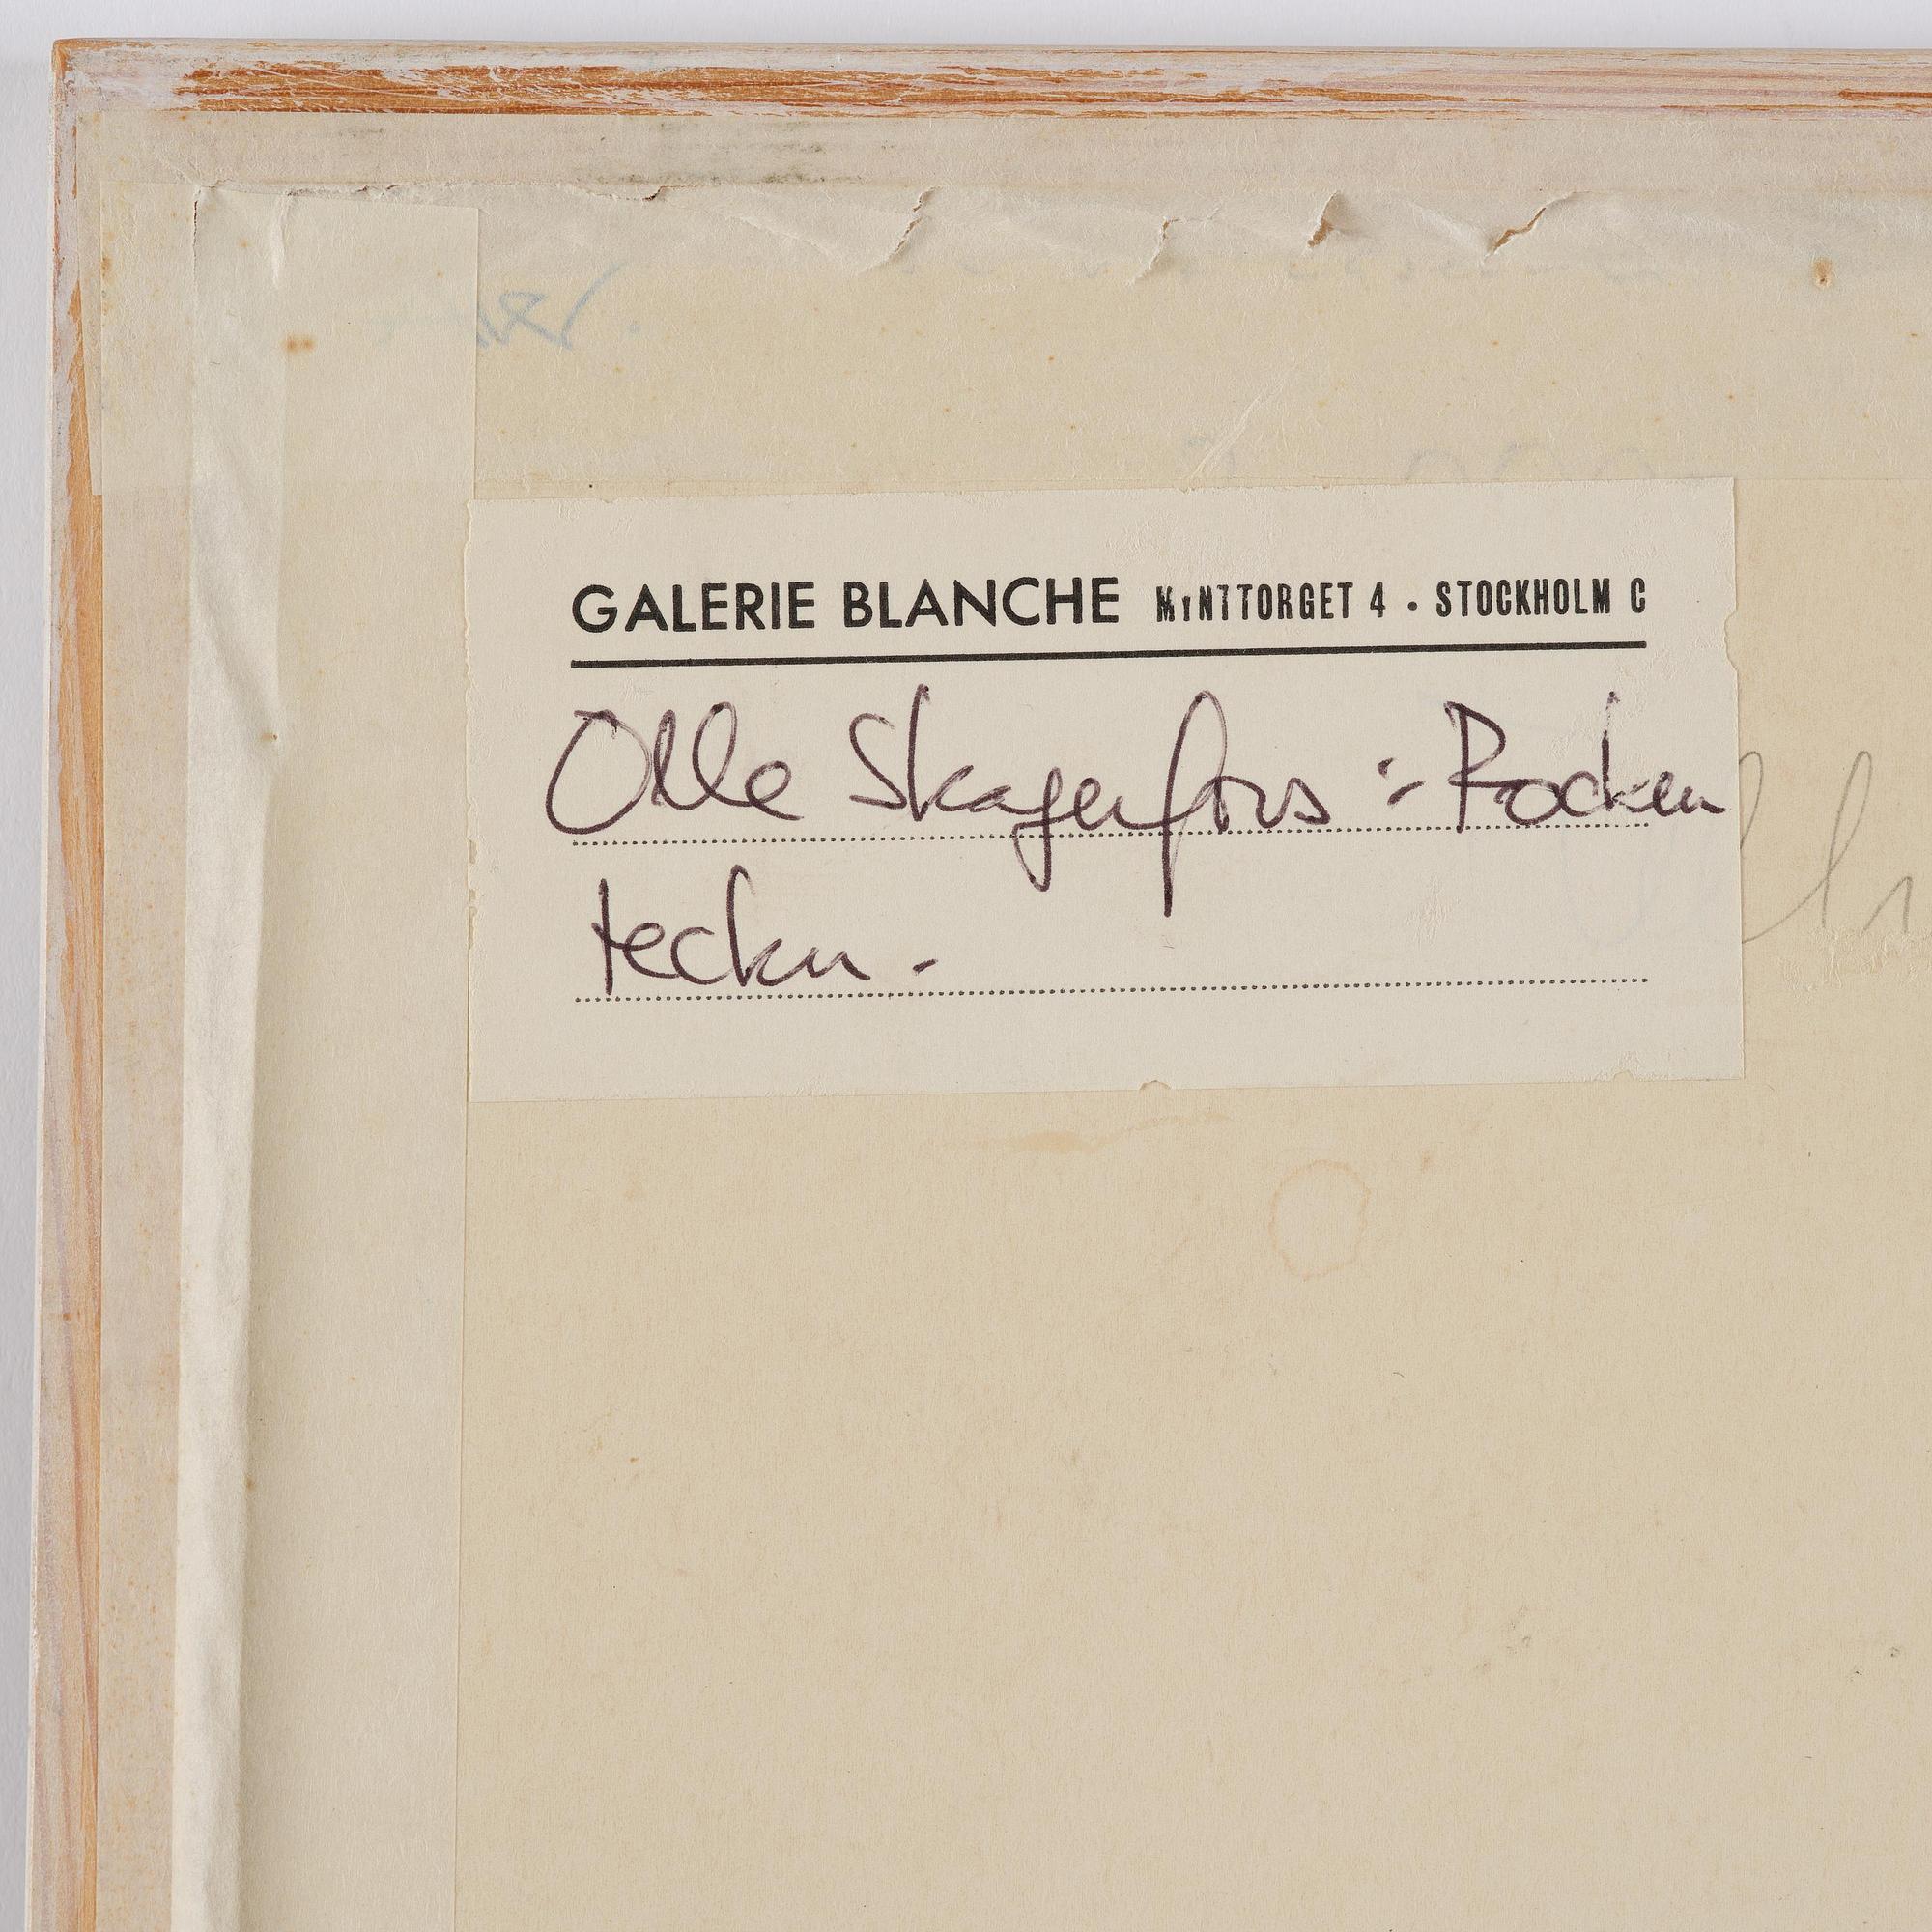 GALERIE BLANCHE MYNTTORGET 4 • STOCKHOLM C
Olle Skagerfors :- Rocken
teckn.